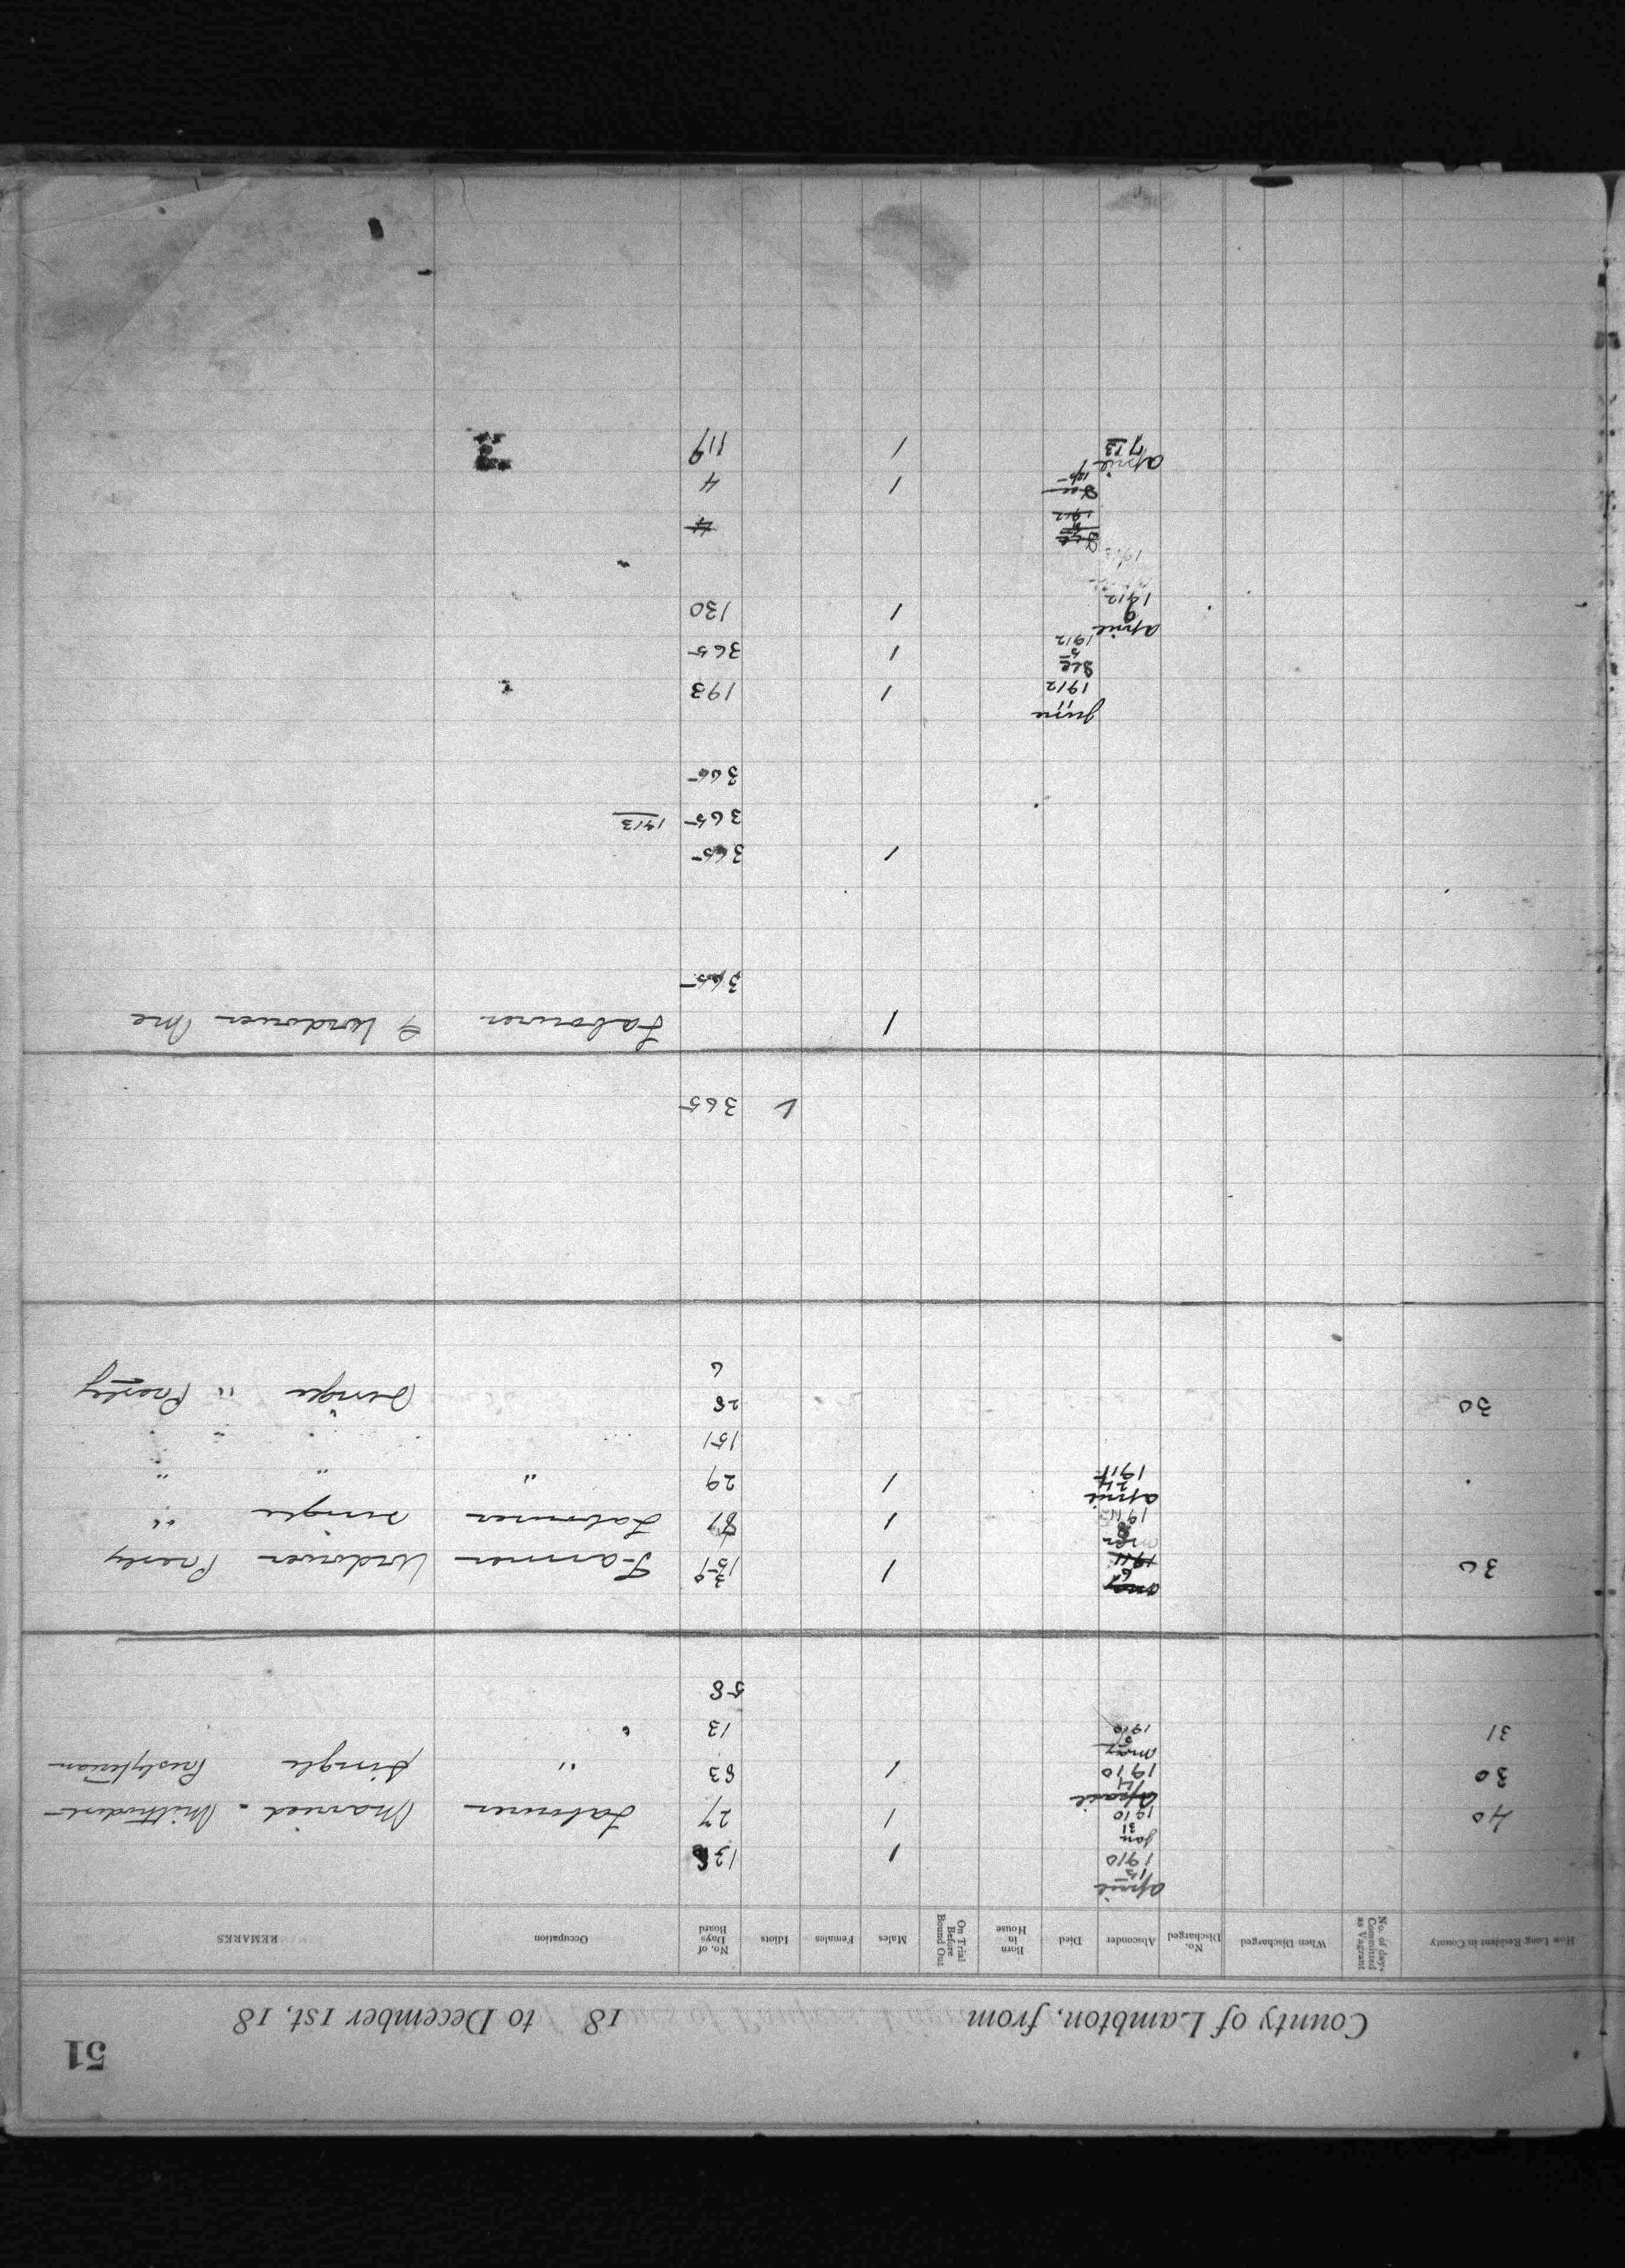 51
County of Lambton, from 18 to December 1st, 18
How Long Resident in County | No. of days Committed as Vagrant | When Discharged | No. Discharged | Absconder | Died | Born in House | On Trial Before Bound Out | Males | Females | Idiots | No. of Days Board | Occupation | REMARKS
April 15 1910 1
40 Jan 31 1910 1 27 Labourer Married - Methodist
30 April 14 1910 1 63 " Single Presbyterian
31 May 5 1910 13 "
58
30 1 Farmer Widower Presby
1 Labourer single "
April 24 1 29 " " "
151
30 28 Single " Presby
6
365
1 Labourer Widower Me
365
1 365
365 1913
365
June 11 1912 1 193
Dec 5 1912 1 365
April 9 1912 1 130
Dec 1912 4
Dec 1 4
April 1 119